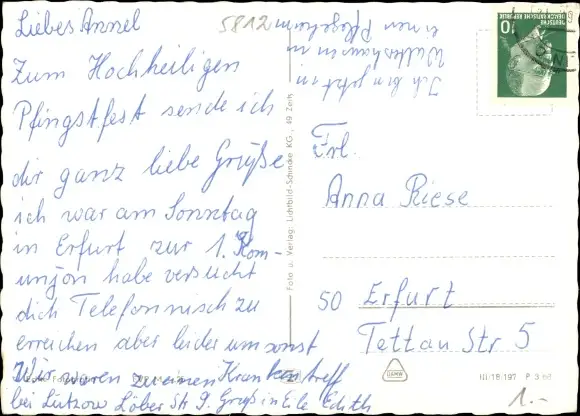 Liebes Annel
Zum Hochheiligen
Pfingstfest sende ich
dir ganz liebe Grüße
ich war am Sonntag
in Erfurt zur 1. Kom-
munjon habe versucht
dich Telefonnisch zu
erreichen aber leider umsonst
Wir waren zu einen Krankentreff
bei Lützow Löber Str 9. Gruß in Eile Edith
5812
Ich bin jetzt in
Waltershausen in
einen Pflegeheim
Foto u. Verlag: Lichtbild-Schincke KG., 49 Zeitz
10
DEUTSCHE
DEMOKRATISCHE REPUBLIK
Frl.
Anna Riese
50 Erfurt
Tettau Str 5
III/18/197 P 3/68
1.-